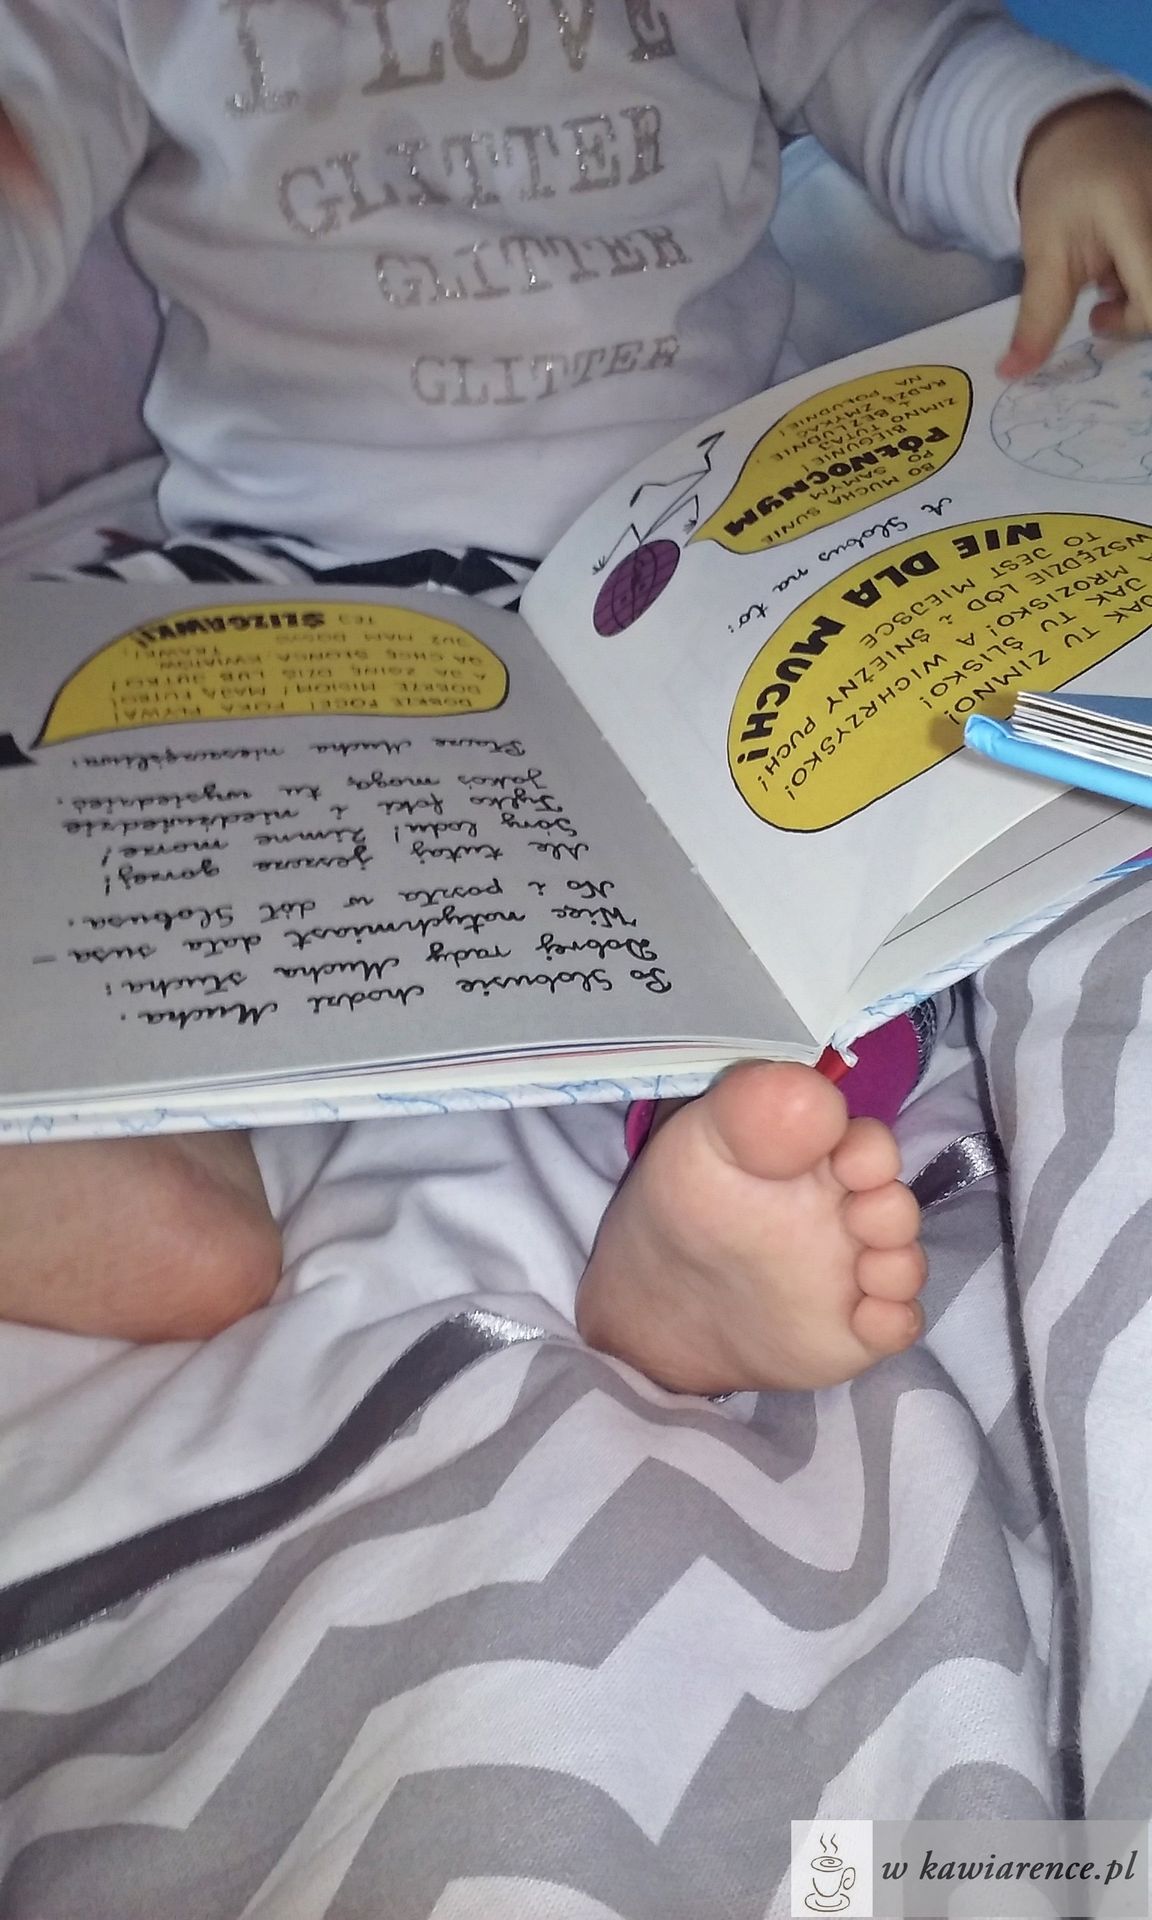 I LOVE
GLITTER
GLITTER
GLITTER
JAK TU ZIMNO!
JAK TU ŚLISKO!
A MROZISKO! A WICHRZYSKO!
WSZĘDZIE LÓD I ŚNIEŻNY PUCH!
TO JEST MIEJSCE
NIE DLA MUCH!
A Globus na to:
BO MUCHA SUNIE
PO SAMYM
PÓŁNOCNYM
BIEGUNIE!
ZIMNO TUTAJ
I BEZLUDNIE.
RADZĘ ZMYKAĆ
NA POŁUDNIE!
Po Globusie chodzi Mucha.
Dobrej rady Mucha słucha:
Więc natychmiast dała susa –
No i poszła w dół Globusa.
Ale tutaj jeszcze gorzej!
Góry lodu! Zimne morze!
Tylko foki i niedźwiedzie
Jakoś mogą tu wysiedzieć.
Płacze Mucha nieszczęśliwa:
DOBRZE FOCE! FOKA PŁYWA!
DOBRZE MISIOM! MAJĄ FUTRO!
A JA ZGINĘ DZIŚ LUB JUTRO!
JA CHCĘ SŁOŃCA, KWIATÓW,
TRAWKI!
JUŻ MAM DOSYĆ
TEJ
ŚLIZGAWKI!
w kawiarence.pl